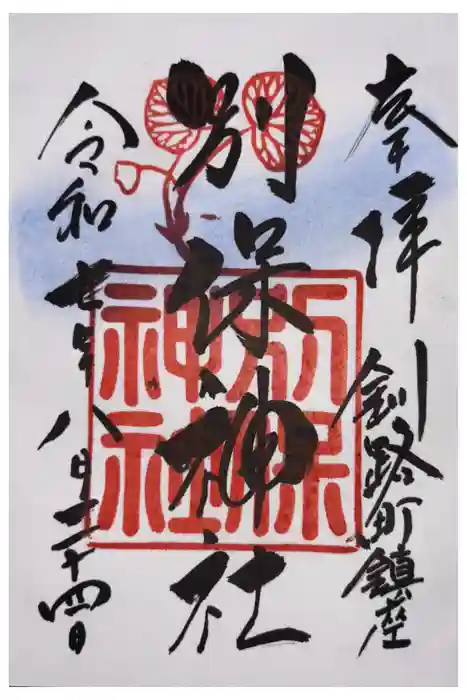 奉拝 釧路町鎮座
別保神社
令和七年八月二十四日
別保
神社